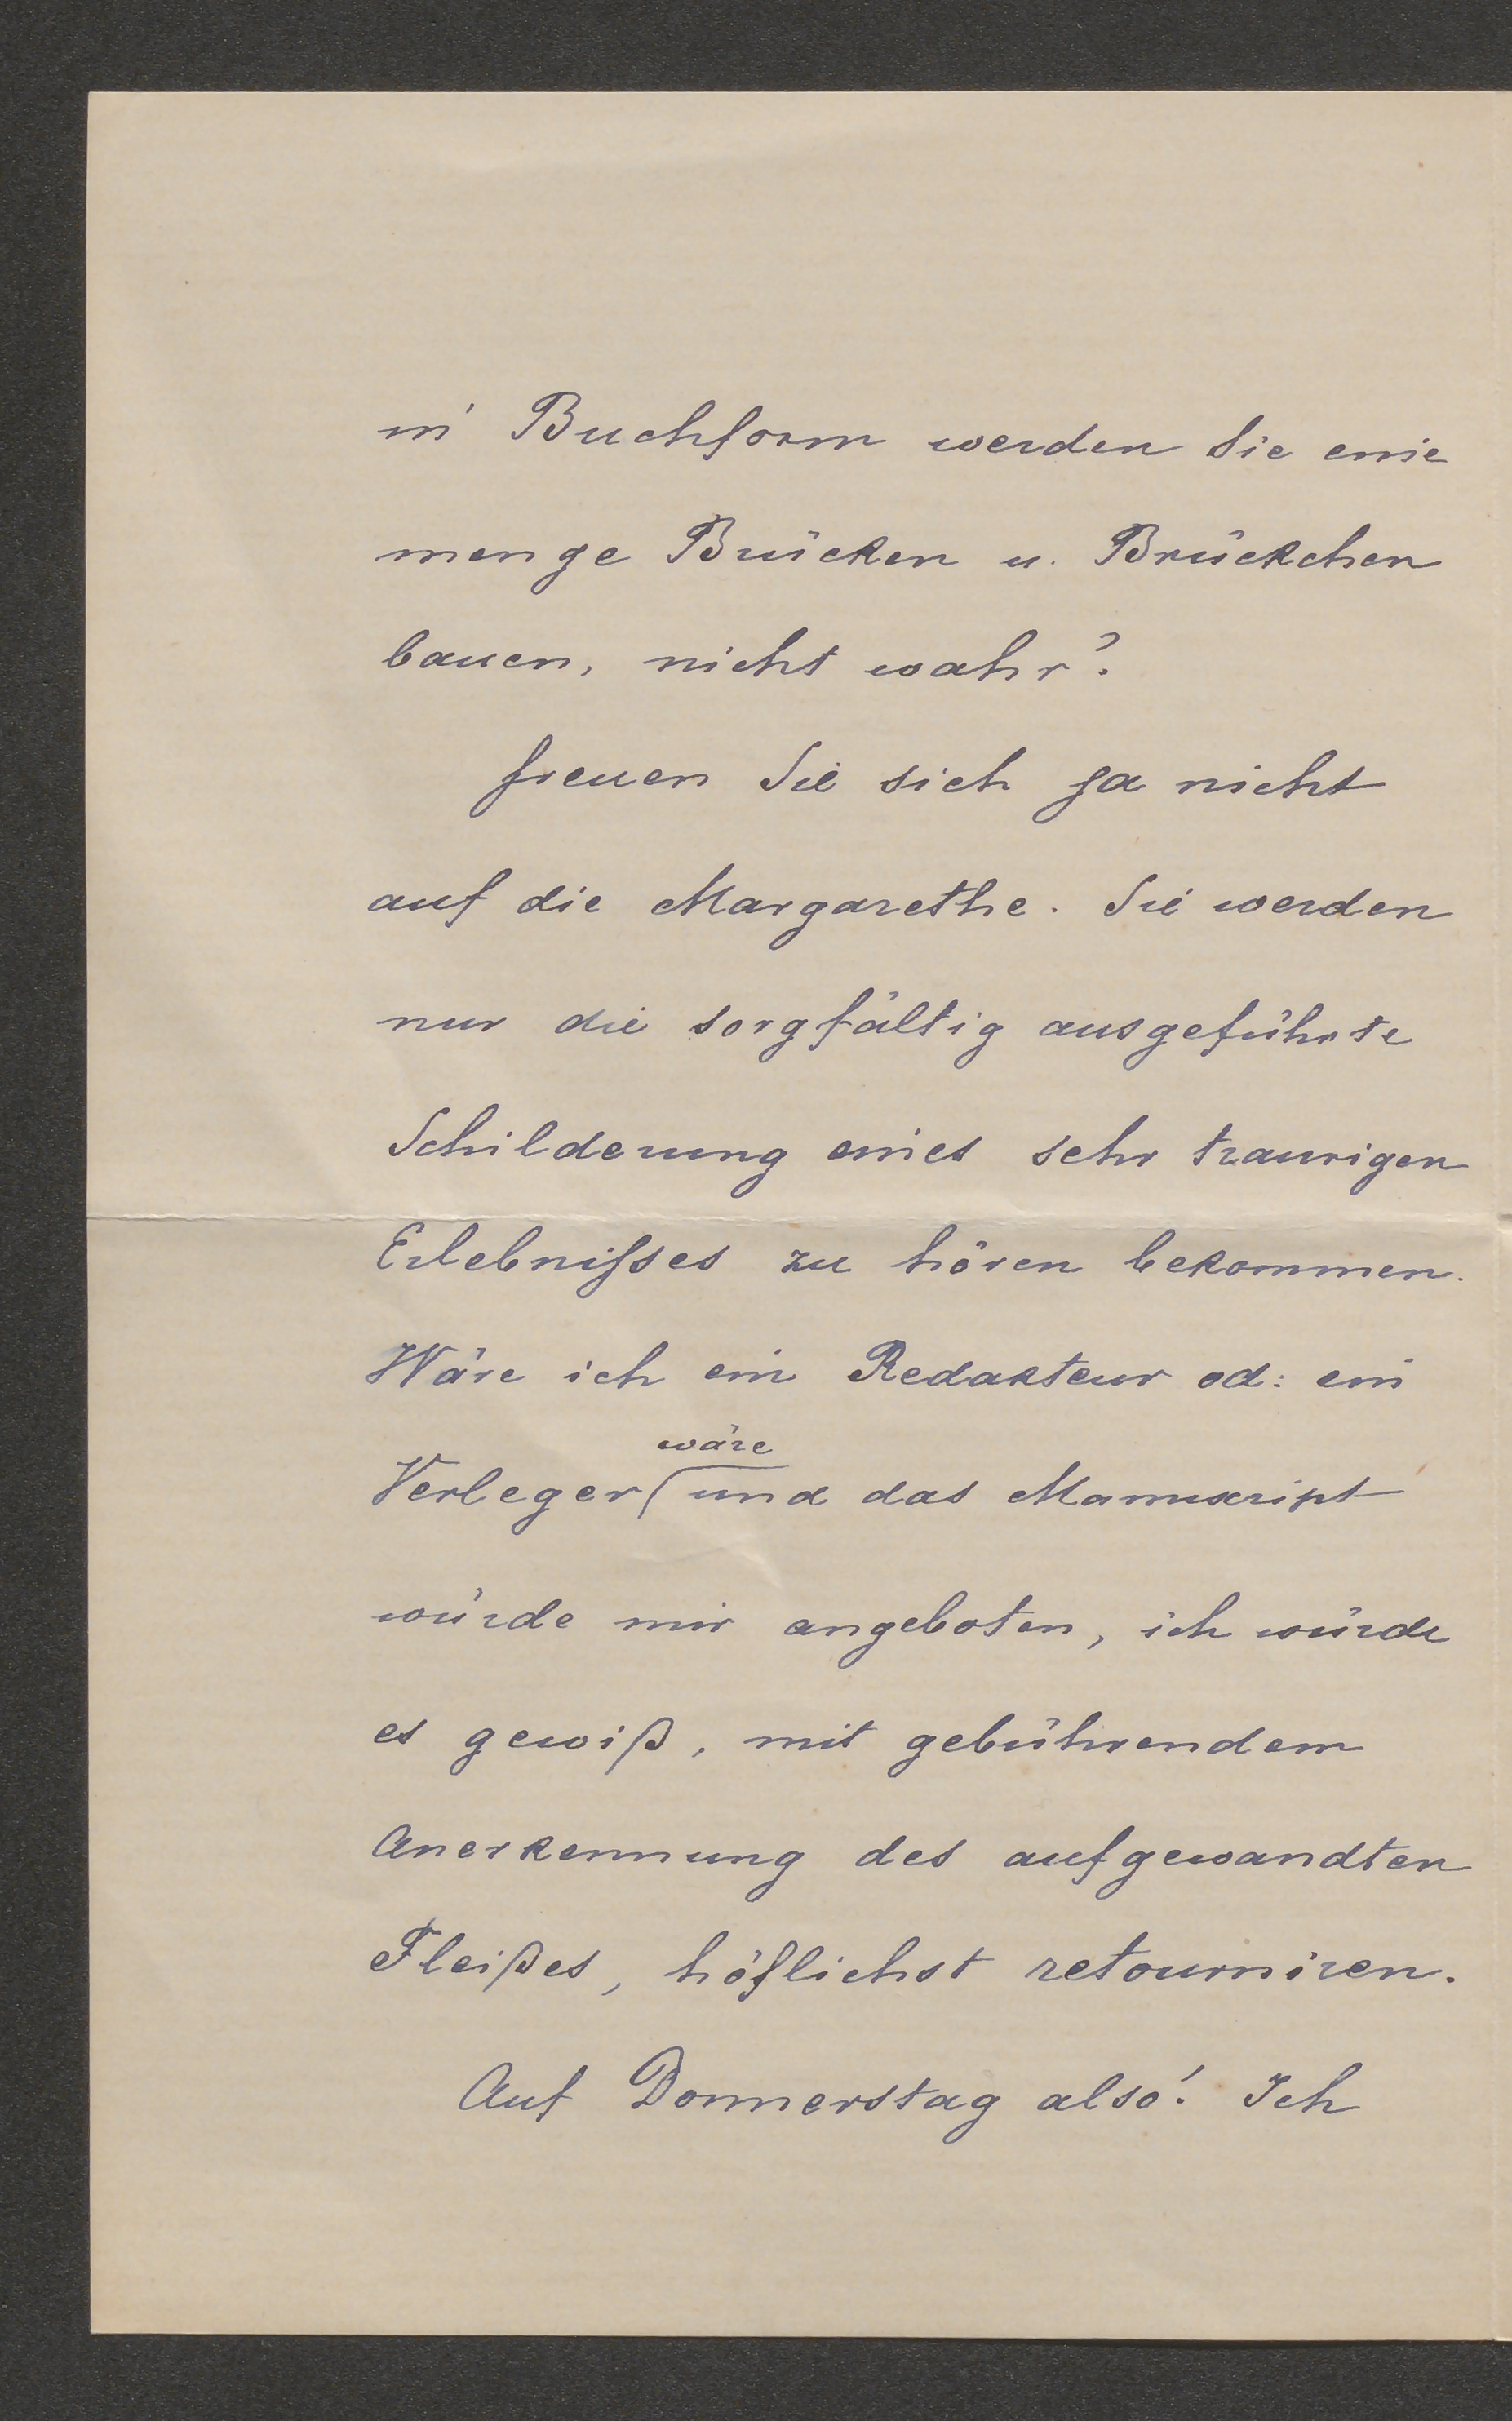 in Buchform werden Sie eine
menge Brücken u. Brückchen
bauen, nicht wahr?
freuen Sie sich ja nicht
auf die Margarethe. Sie werden
nur die sorgfältig ausgeführte
Schilderung eines sehr traurigen
Erlebnißses zu hören bekommen.
Wäre ich ein Redakteur od: ein
wäre
Verleger und das Manuscript
würde mir angeboten, ich würde
es gewiß, mit gebührendem
Anerkennung des aufgewandten
Fleißes, höflichst retourniren.
Auf Donnerstag also! Ich